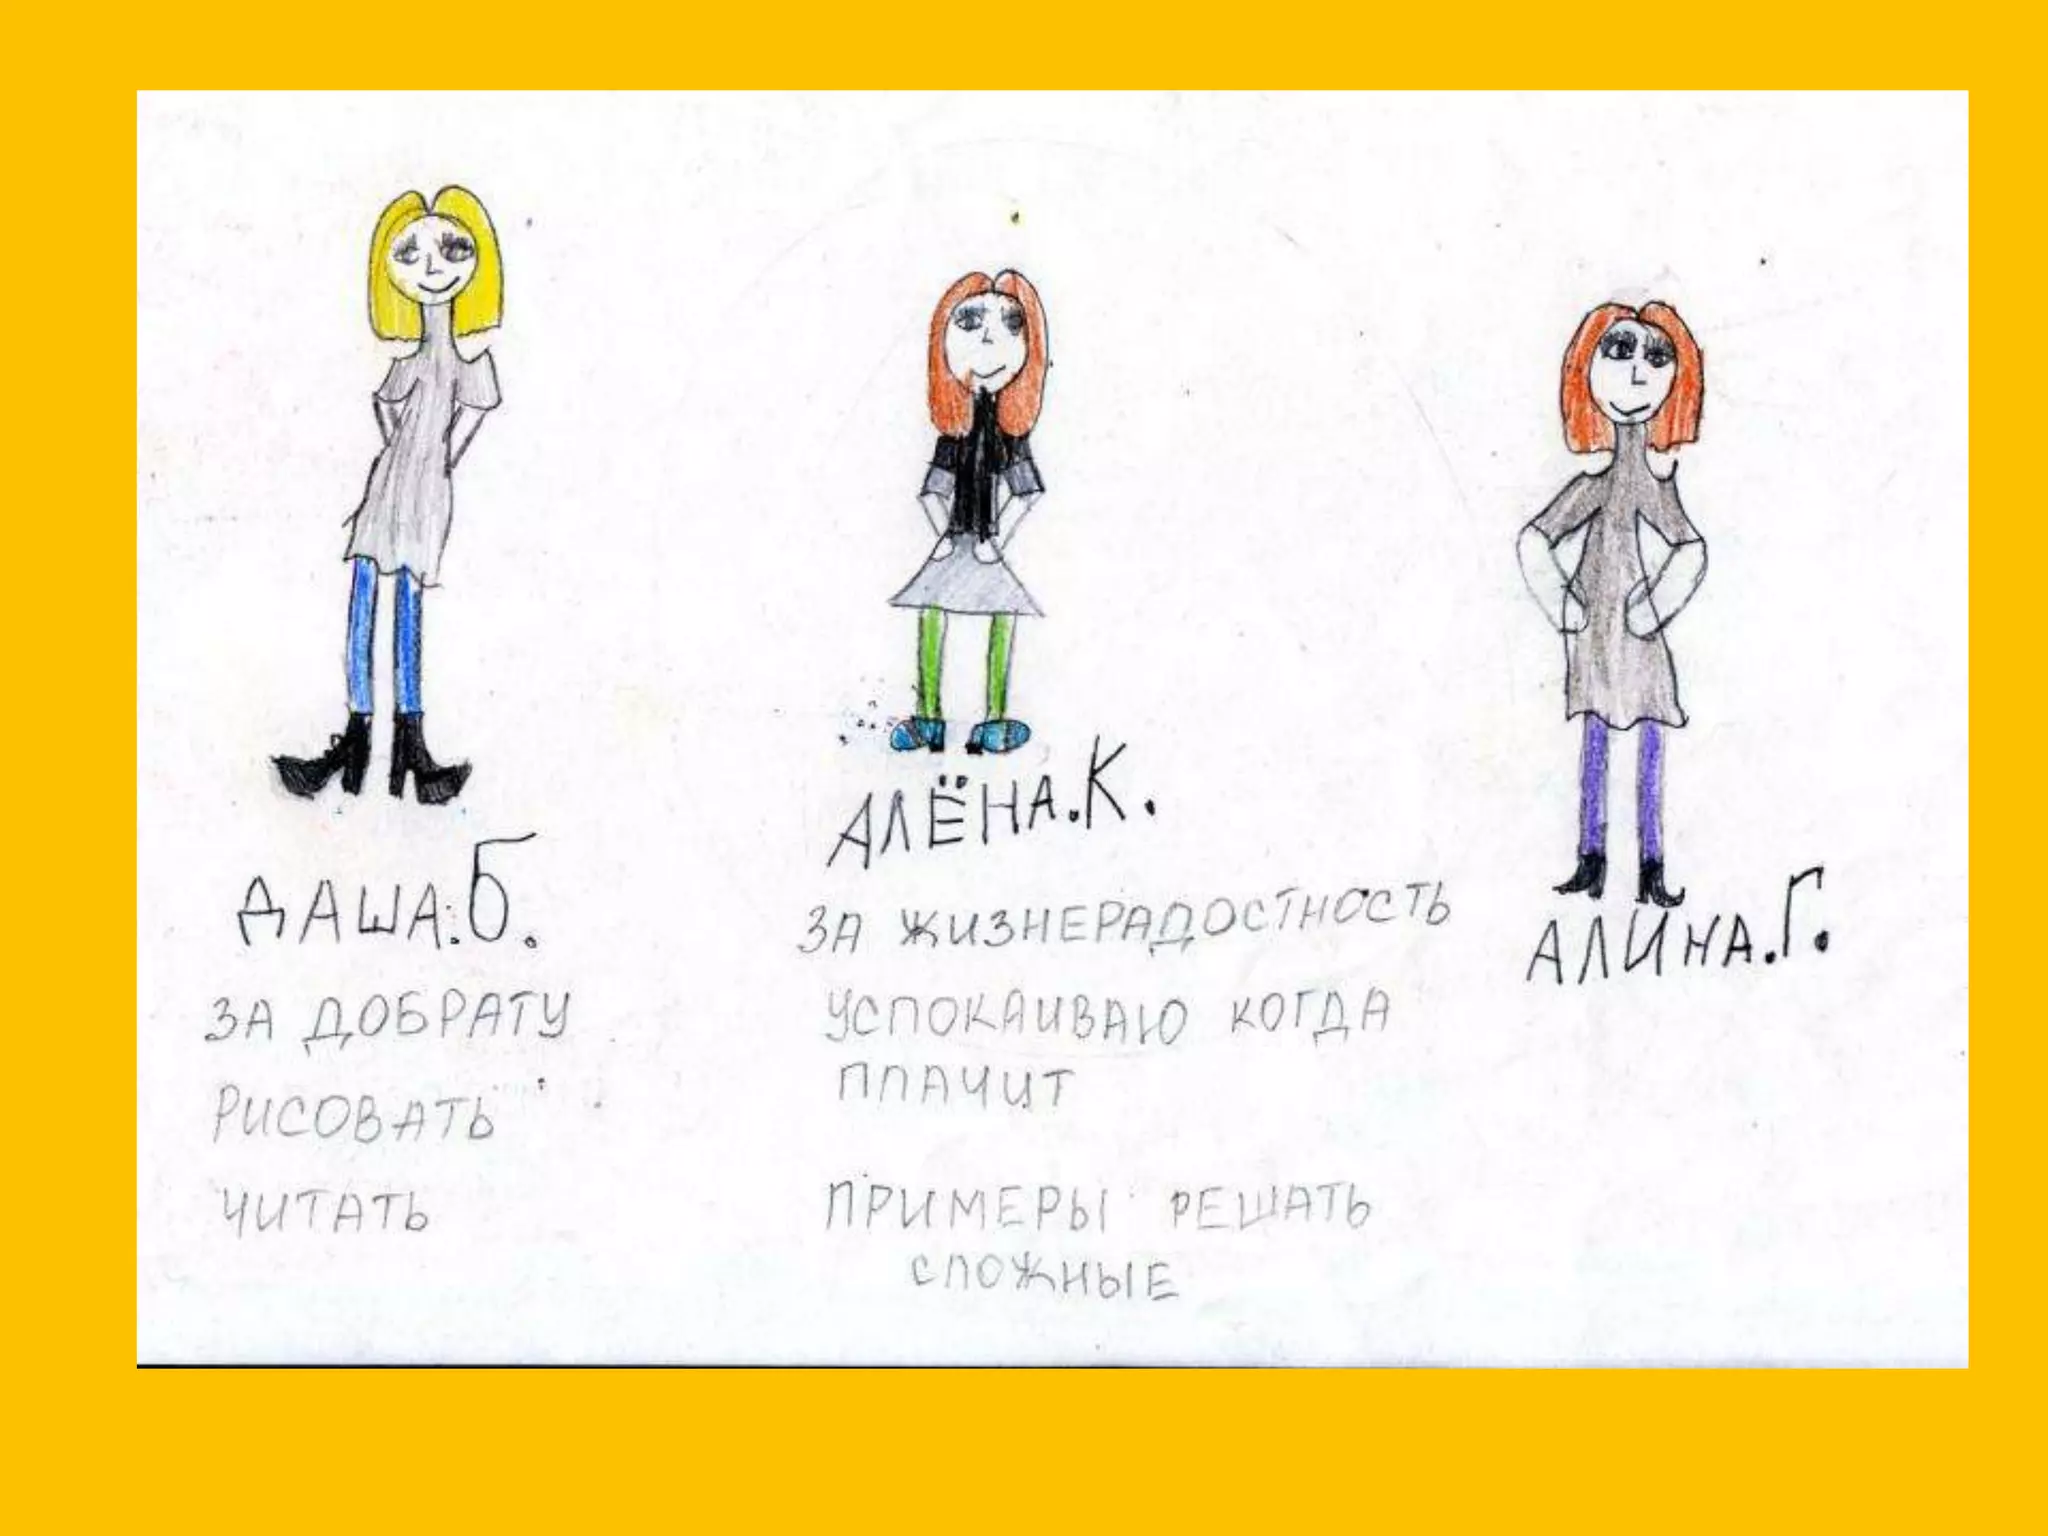 ДАША.Б.
ЗА ДОБРАТУ
РИСОВАТЬ
ЧИТАТЬ
АЛЁНА.К.
ЗА ЖИЗНЕРАДОСТНОСТЬ
УСПОКАИВАЮ КОГДА
ПЛАЧИТ
ПРИМЕРЫ РЕШАТЬ
СЛОЖНЫЕ
АЛИНА.Г.